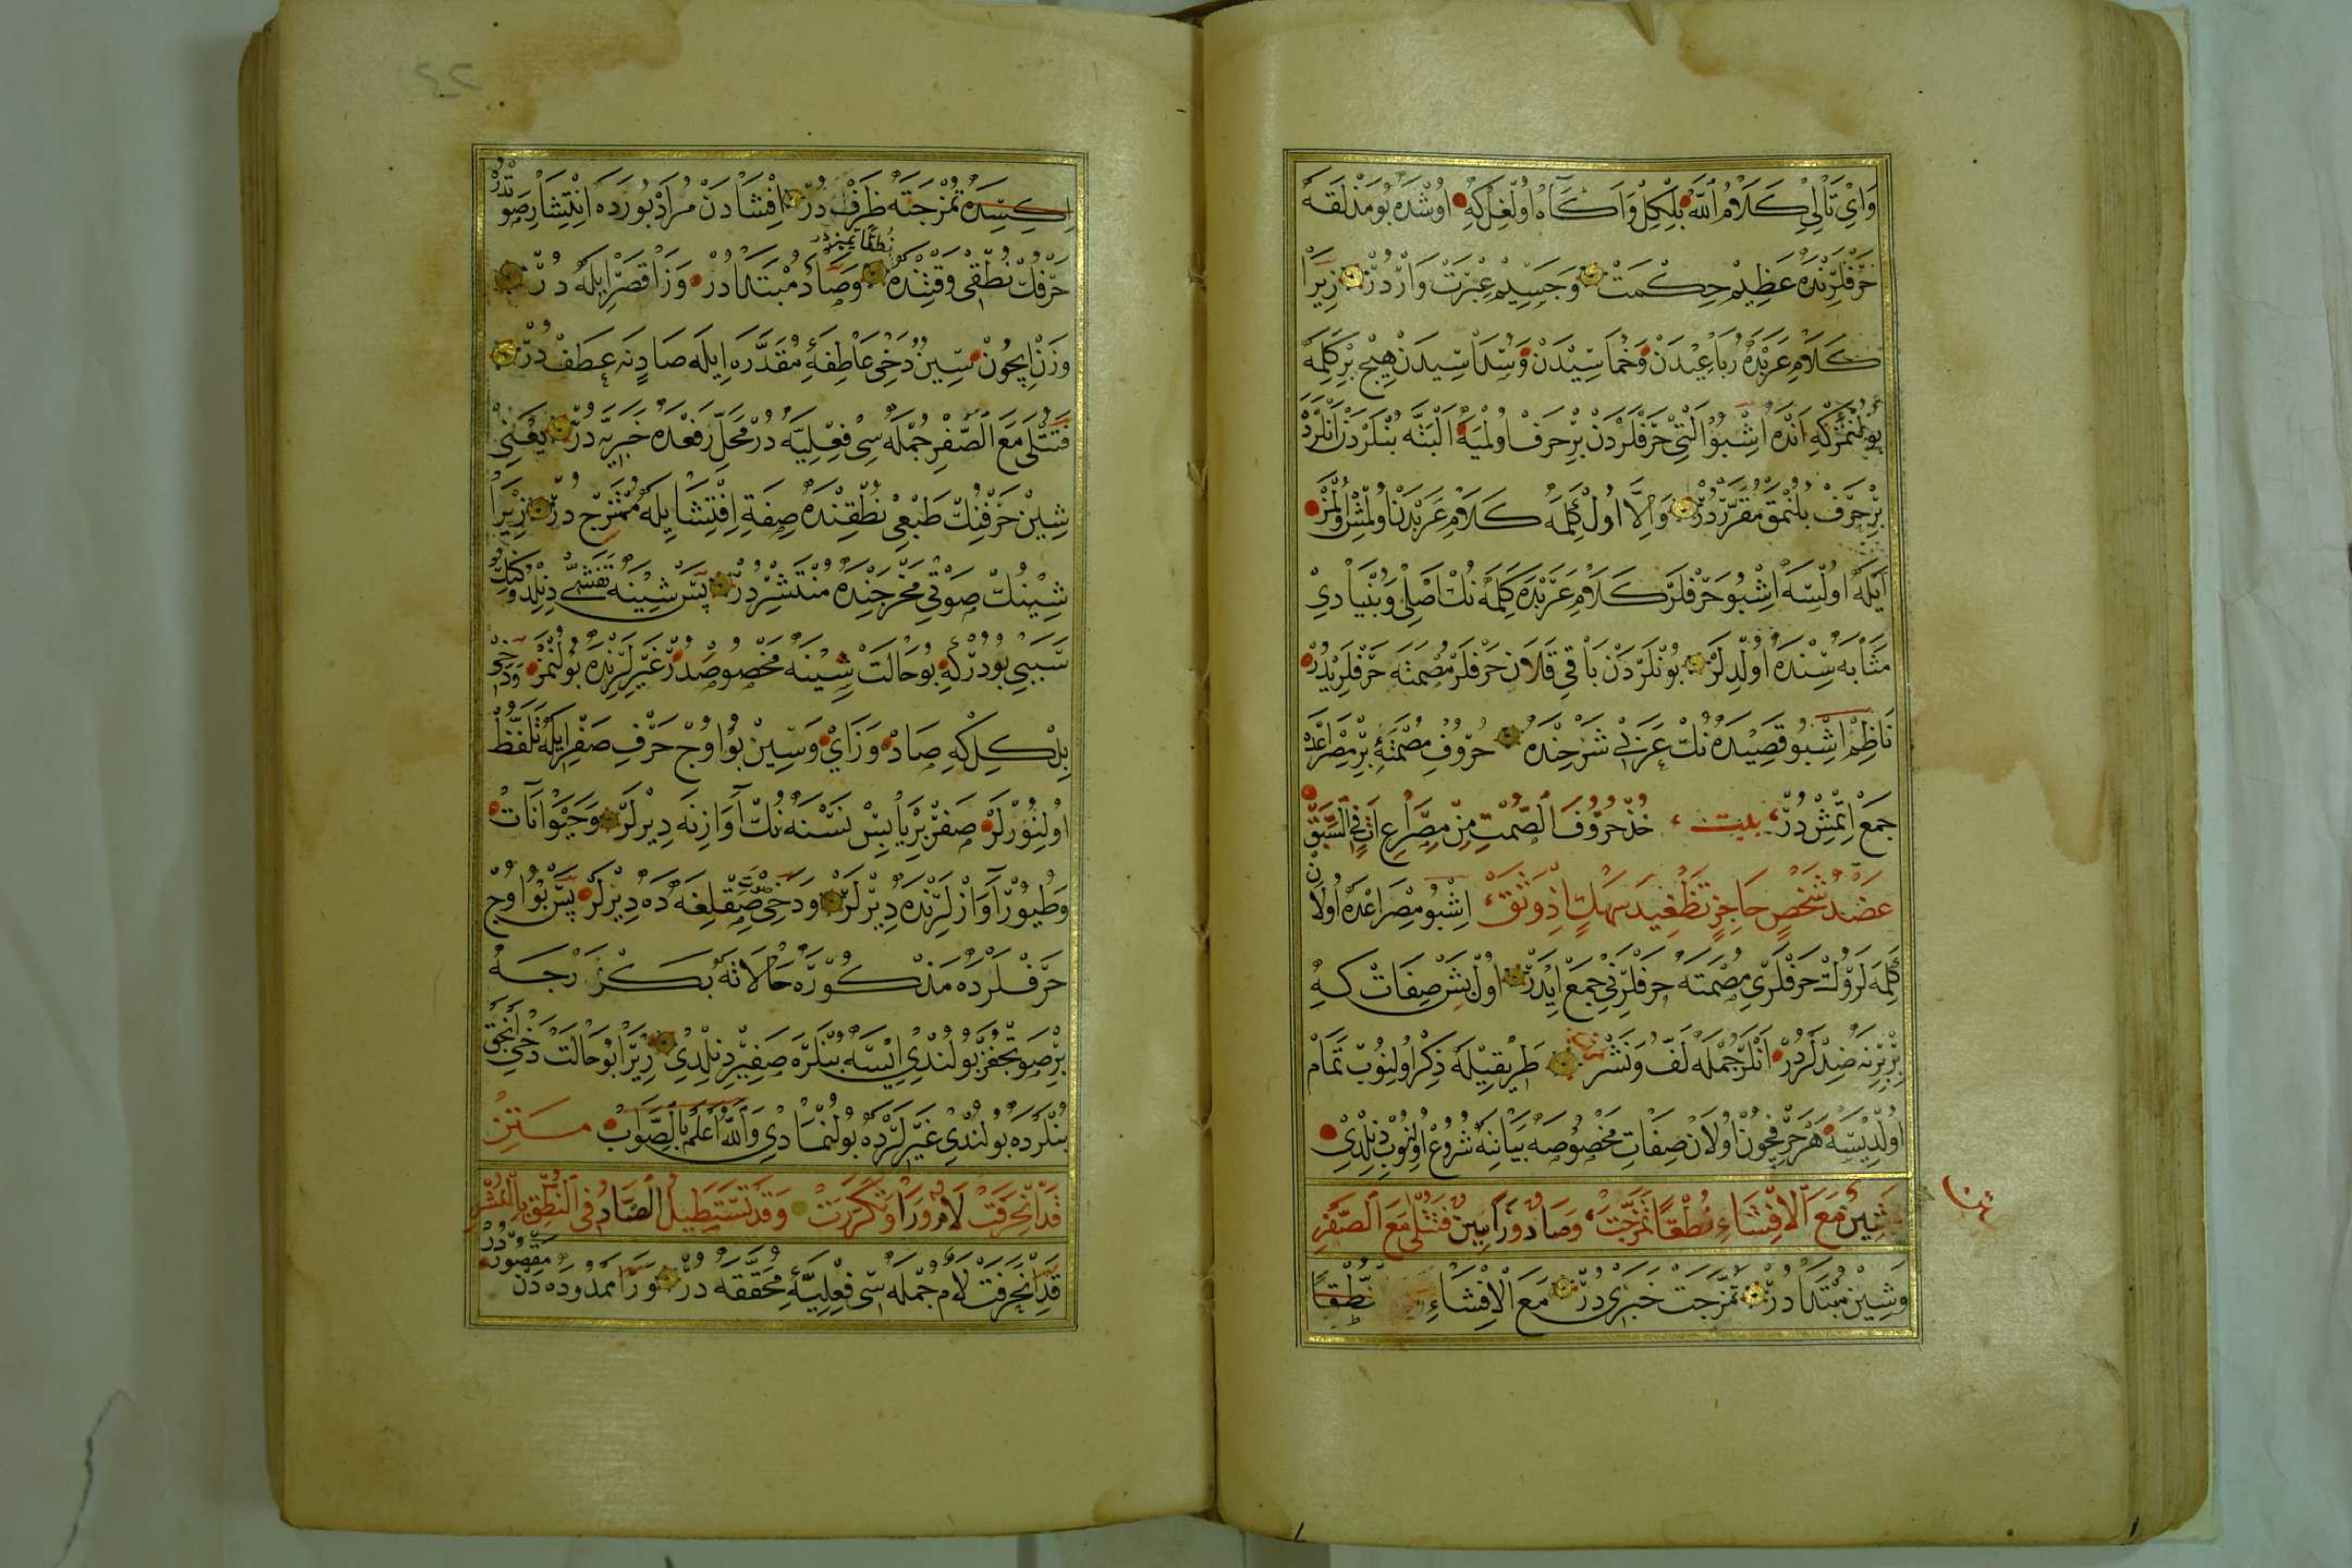 وَاىْ تَالِئِ كَلَامُ اللّٰه بِلْكِلْ وَاكَاه اُولْغِلْ كِه اوُشْدَه بُو مَذْلَقَه
حَرْفْلَرِنْدَه عَظِيمْ حِكْمَتْ وَجَسِيمْ عِبْرَتْ وَارْدُرْ زِيرَا
كَلَامِ عَرَبْدَه رُبَاعِيْدَنْ وَخُمَاسِيْدَنْ وَسُدَاسِيدَنْ هِيچْ بِرْ كَلِمَه
بُولُنْمَزْ كِه انْدَه اشْبُو الْتِى حَرْفْلَرْدَنْ بِرْ حَرف اولْمَيَه اَلْبَتَّه بُنْلَرْدَنْ انْلَرْدَه
بِرْ حَرْفْ بُلُنْمَقْ مُقَرَّرْدُرْ وَاِلَّا اُولْ كَلِمَه كَلَامِ عَرَبْدَنْ اُولْمِشْ اُولْمَزْ
اَيْلَه اُولِيْسَه اشْبُو حَرْفْلَرْ كَلَامِ عَرَبْدَه كَلِمَه نُكْ اَصْلِى وَبُنْيَادِىْ
مَثَابَه سِنْدَه اُولْدِلَرْ بُونْلَرْدَنْ بَاقِى قَلَانْ حَرْفْلَرْ مُصْمَتَه حَرْفْلَرِيْدُرْ
نَاظِمْ اشْبُو قَصِيدَه نُكْ عَرَبِى شَرْحِنْدَه حُرُوفِ مُصْمَتَه‌ئِ بِرْ مِصْرَاعْدَه
جَمْعْ اِتْمِشْدُرْ بيت خُذْ حُرُوفَ الصَّمْتِ مِنْ مِصْرَاعِ اٰتٍ فِى السَّبَقْ
عَضَدُ شَخْصٍ حَاجِزٍ تَظْغِيدَ سَهْكٍ اِذْ وَثَقْ اِشْبُو مِصْرَاعْدَه اُولَانْ
كَلِمَه لَرُكْ حَرْفْلَرِى مُصْمَتَه حَرْفْلَرِنِى جَمْعْ ايْدَرْ اولْ بَشْ صِفَاتْ كِه
بِرْبِرِنَه ضِدْلَرْدُرْ انْلَرْ جُمْلَه لَفّ وَنَشْرْ طَرِيقِيلَه ذِكْرْ اُولِنُوبْ تَمَامْ
اُولْدِيْسَه هَرْ حَرْفِچُونْ اُولَانْ صِفَاتِ مَخْصُوصَه بَيَانِنَه شُرُوعْ اُولِنُوبْ دِنِلْدِىْ
شِينٌ مَعَ الْاِفْشَاءِ نُطْقًا تَمَزَّجَتْ وَصَادٌ وَزَا سِينٌ فَتُتْلَى مَعَ الصَّفْرِ
وَشِينْ مُبْتَدَا دُرْ تَمَزَّجَتْ خَبَرِىدُرْ مَعَ الْاِفْشَاءِ نُطْقًا
اِكِيسِدَه تَمَزَّجَتَه ظَرْفْ دُرْ اِفْشَادَنْ مُرَادْ بُورَدَه اِنْتِشَارِ صَوْتدُرْ
حَرْفُكْ نُطْقِى وَقْتِنْدَه وَصَادْ مُبْتَدَا دُرْ وَزَا قَصْرْ ايلَه دُرْ
نُطْقًا تميزدر
وَزَنِ ايچُونْ سِينْ دَخِى عَاطِفَه‌ئِ مُقَدَّرَه اِيلَه صَادِنَه عَطَفْ دُرْ
فَتُتْلَى مَعَ الصَّفْرِ جُمْلَه سِى فِعْلِيَّه دُرْ مَحَلِّ رَفْعْدَه خَبَرِيَّه دُرْ يَعْنِى
شِينْ حَرْفِنُكْ طَبْعِى نُطْقِنْدَه صِفَةِ اِفْتِشَا ايلَه مُمْتَزِجْ دُرْ زِيرَا
شِينُكْ صَوْتِى مَخْرَجِنْدَه مُنْتَشِرْدُرْ پَسْ شِينَه تَفَشِّى دِنِلْدُوكِنُكْ
سَبَبِى بُودُرْكِه بُو حَالَتْ شِينَه مَخْصُوصْدُرْ غَيْرِلَرِنْدَه بُولُنْمَزْ وَدَخِى
بِلْكِلْ كِه صَادْ وَزَاىْ وَسِينْ بُو اوُچْ حَرْفِ صَفْرْ ايلَه تَلَفُّظْ
اُولِنُورْلَرْ صَفْرْ بِرْ يَابِسْ نَسْنَه نُكْ آوَازِنَه دِيرْلَرْ وَحَيْوَانَاتْ
وَطُيُورْ آوَازْلَرِنْدَه دِيرْلَرْ وَدَخِى صِقْلِغَه دَه دِيرْلَرْ پَسْ بُو اوُچْ
حَرْفْلَرْدَه مَذْكُورَه حَالَاتَه بَكْزَرْجَه
بِرْ صَوْتْجِغَزْ بُولُنْدِى ايْسَه بُنْلَرَه صَفِيرْ دِنِلْدِى زِيرَا بُو حَالَتْ دَخِى اَنْجَقْ
بُنْلَرْدَه بُولُنْدِى غَيْرِلَرْدَه بُولُنْمَادِى وَاللّٰه اَعْلَمُ بِالصَّوَابْ مَتِنْ
قَدِ انْحَرَفَتْ لَامٌ وَرَا وَتَكَرَّرَتْ وَقَدْ تَسْتَطِيلُ الضَّادُ فِى النُّطْقِ بِالْعُشْرِ
قَدِ انْحَرَفَتْ لَامْ جُمْلَه سِى فِعْلِيَّه‌ئِ مُحَقَّقَه دُرْ وَرَا مَمْدُودَه دَنْ مَقْصُورَه دُرْ